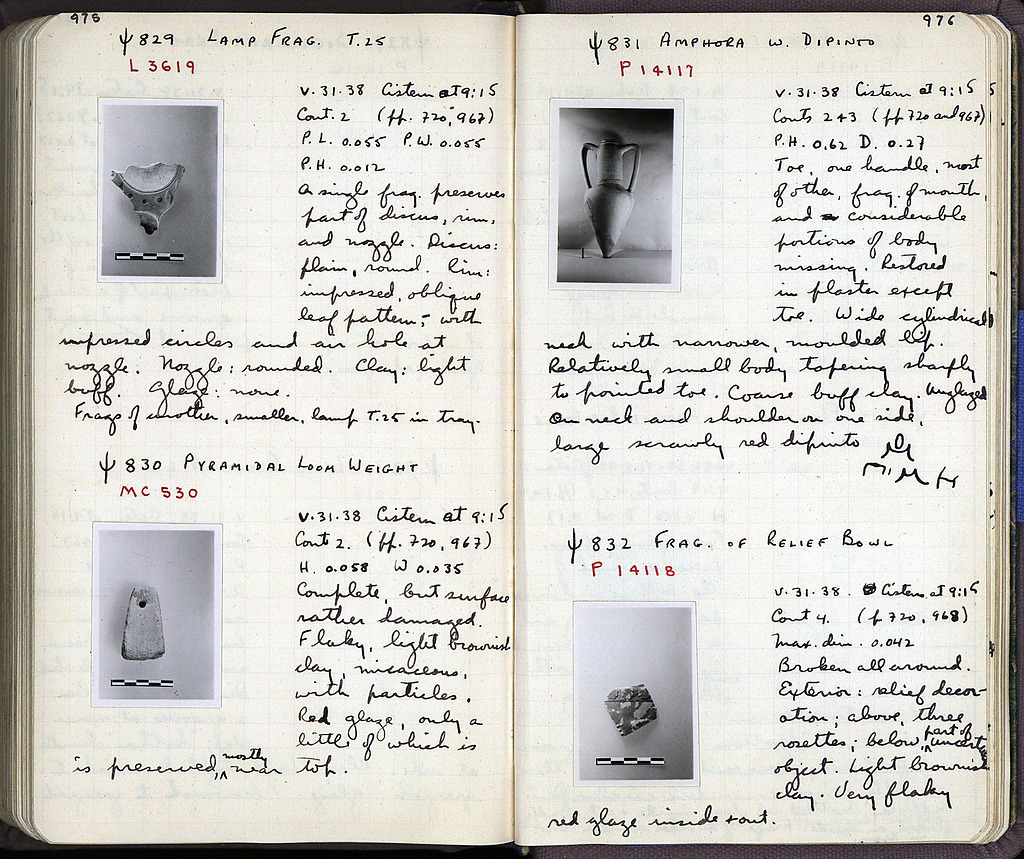 975
ψ829 LAMP FRAG. T.25
L 3619
V.31.38 Cistern at 9:15
Cont. 2 (pp. 720, 967)
P.L. 0.055 P.W. 0.055
P.H. 0.012
A single frag. preserves
part of discus, rim,
and nozzle. Discus:
plain, round. Rim:
impressed, oblique
leaf pattern, with
impressed circles and air hole at
nozzle. Nozzle: rounded. Clay: light
buff. Glaze: none.
Frags of another, smaller, lamp T.25 in tray.
ψ830 PYRAMIDAL LOOM WEIGHT
MC 530
V.31.38 Cistern at 9:15
Cont 2. (pp. 720, 967)
H. 0.058 W 0.035
Complete, but surface
rather damaged.
Flaky, light brownish
clay, micaceous,
with particles.
Red glaze, only a
little of which is
is preserved, mostly near top.
976
ψ831 AMPHORA W. DIPINTO
P 14117
V.31.38 Cistern at 9:15
Conts 2+3 (pp 720 and 967)
P.H. 0.62 D. 0.27
Toe, one handle, most
of other, frag. of mouth,
and considerable
portions of body
missing. Restored
in plaster except
toe. Wide cylindrical
neck with narrower, moulded lip.
Relatively small body tapering sharply
to pointed toe. Coarse buff clay. Unglazed
On neck and shoulder on one side,
large scrawly red dipinto
ψ832 FRAG. OF RELIEF BOWL
P 14118
V.31.38. Cistern at 9:15
Cont 4. (p 720, 968)
Max. dim. 0.042
Broken all around.
Exterior: relief decor-
ation; above, three
rosettes; below, part of uncertain
object. Light brownish
clay. Very flaky
red glaze inside + out.